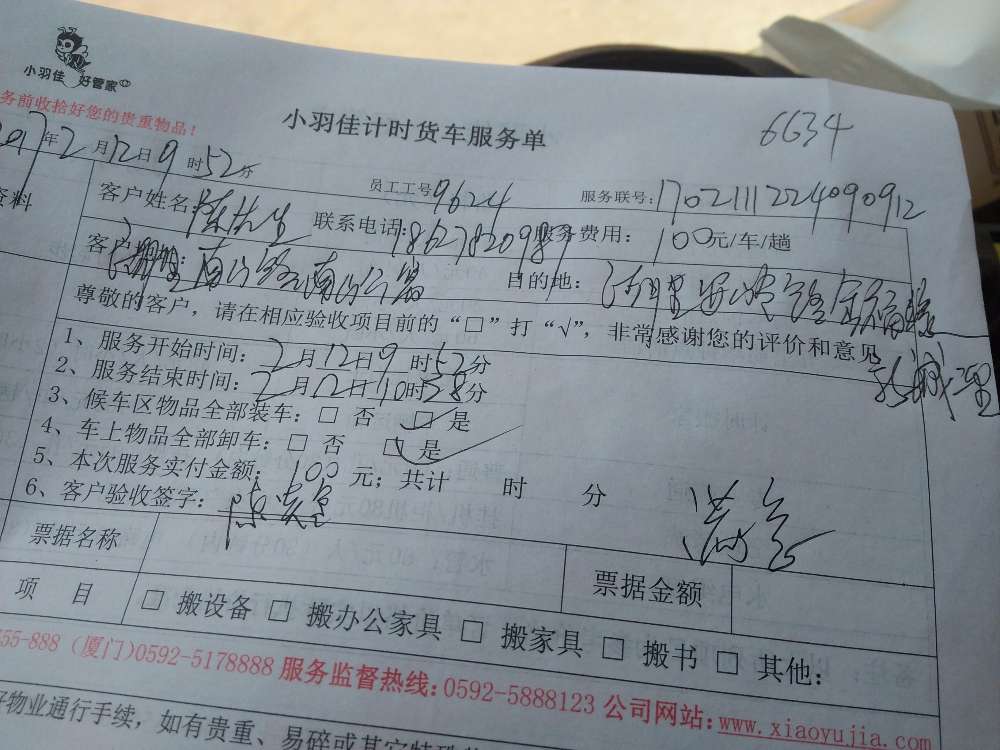 小羽佳 好管家
务前收拾好您的贵重物品！
小羽佳计时货车服务单
6634
2017年2月12日9时52分
员工工号9624
服务联号：1702111224090912
资料
客户姓名：陈先生
联系电话：18627820989
服务费用：100元/车/趟
客户
南山路南山公寓
目的地：
尊敬的客户，请在相应验收项目前的“□”打“√”，非常感谢您的评价和意见
1、服务开始时间：2月12日9时52分
2、服务结束时间：2月12日10时58分
3、候车区物品全部装车：□ 否 □ 是
4、车上物品全部卸车：□ 否 □ 是
5、本次服务实付金额：100元；共计 时 分
6、客户验收签字：
满意
票据名称
票据金额
项 目
□ 搬设备 □ 搬办公家具 □ 搬家具 □ 搬书 □ 其他：
55-888（厦门）0592-5178888 服务监督热线：0592-5888123 公司网站：www.xiaoyujia.com
好物业通行手续，如有贵重、易碎或其它特殊